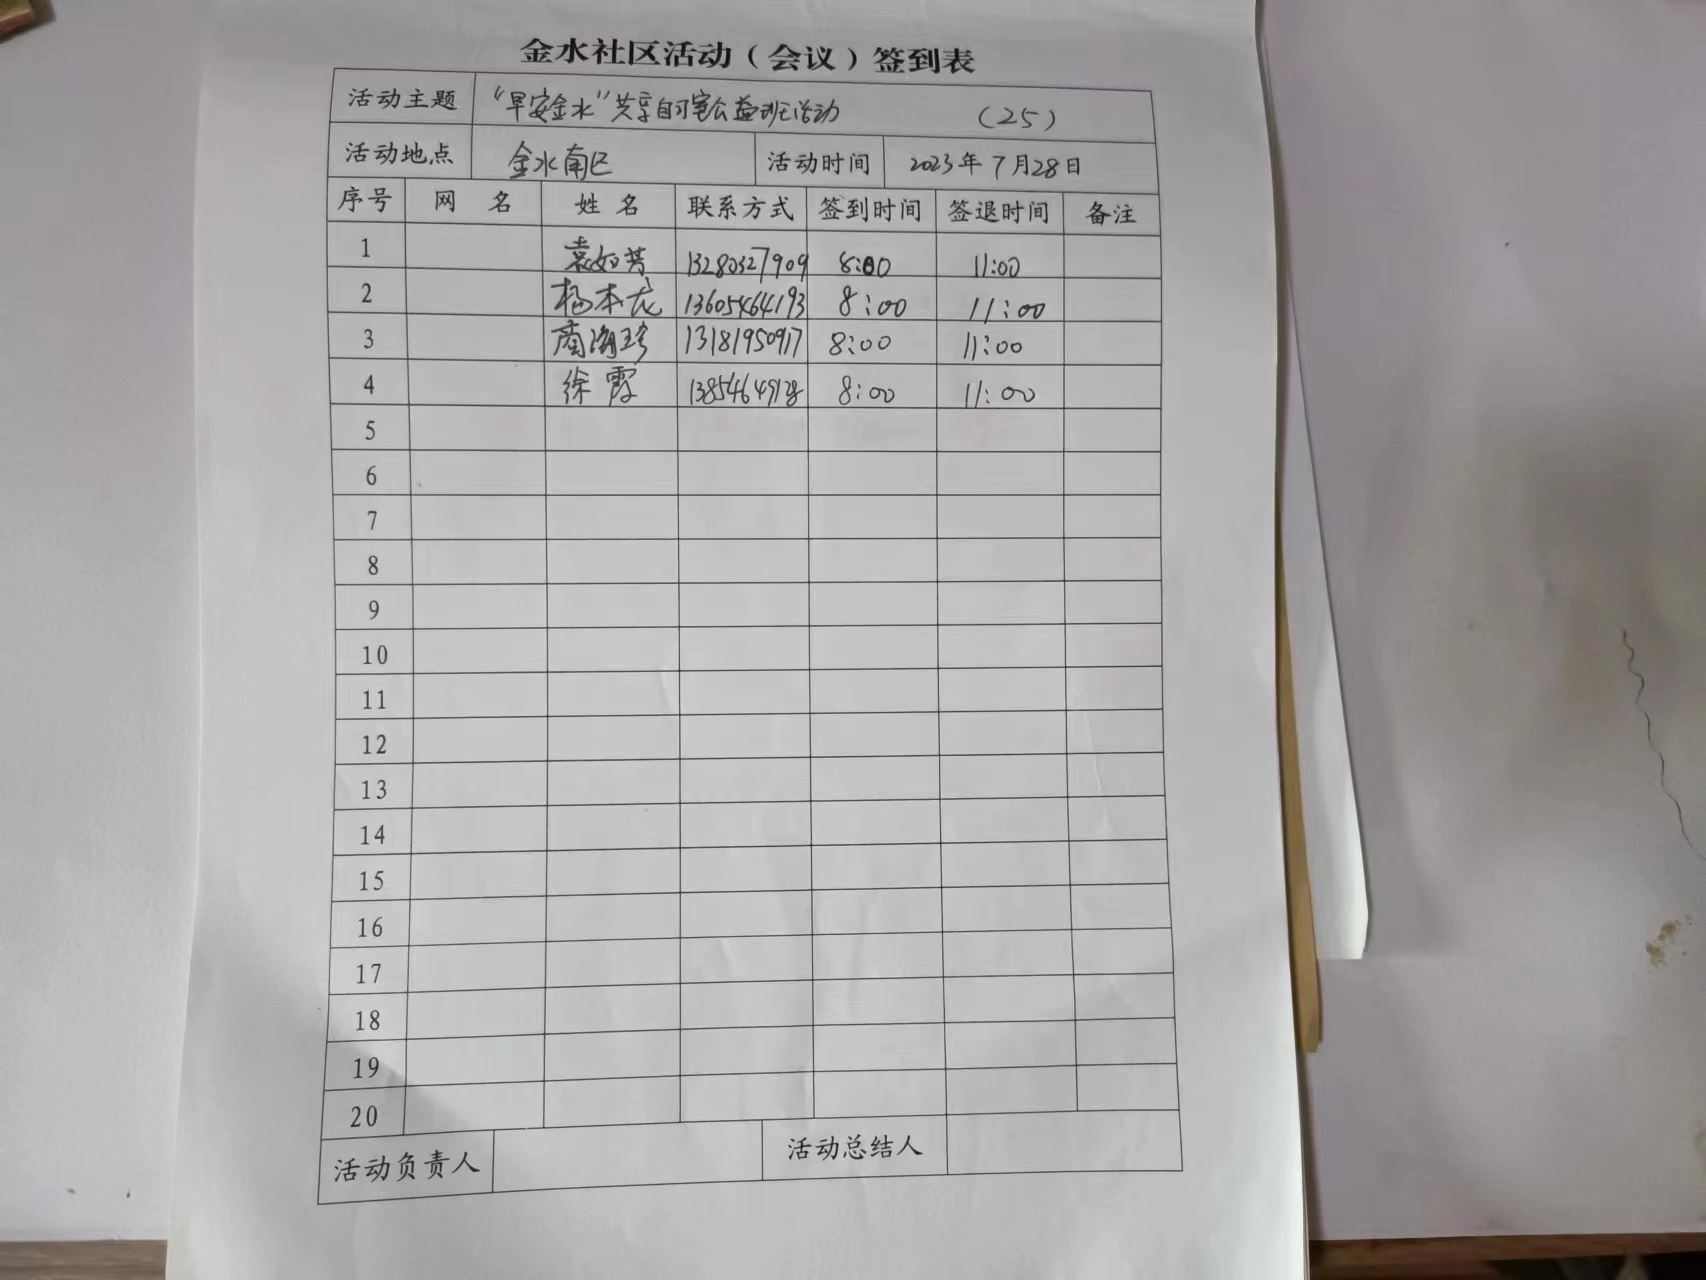 金水社区活动（会议）签到表
活动主题 “早安金水”共享自习室公益班活动 （25）
活动地点 金水南区 活动时间 2023年7月28日
序号 网 名 姓 名 联系方式 签到时间 签退时间 备注
1 袁如芳 13280327909 8:00 11:00
2 杨本龙 13605464193 8:00 11:00
3 13181950917 8:00 11:00
4 徐霞 8:00 11:00
5
6
7
8
9
10
11
12
13
14
15
16
17
18
19
20
活动负责人 活动总结人